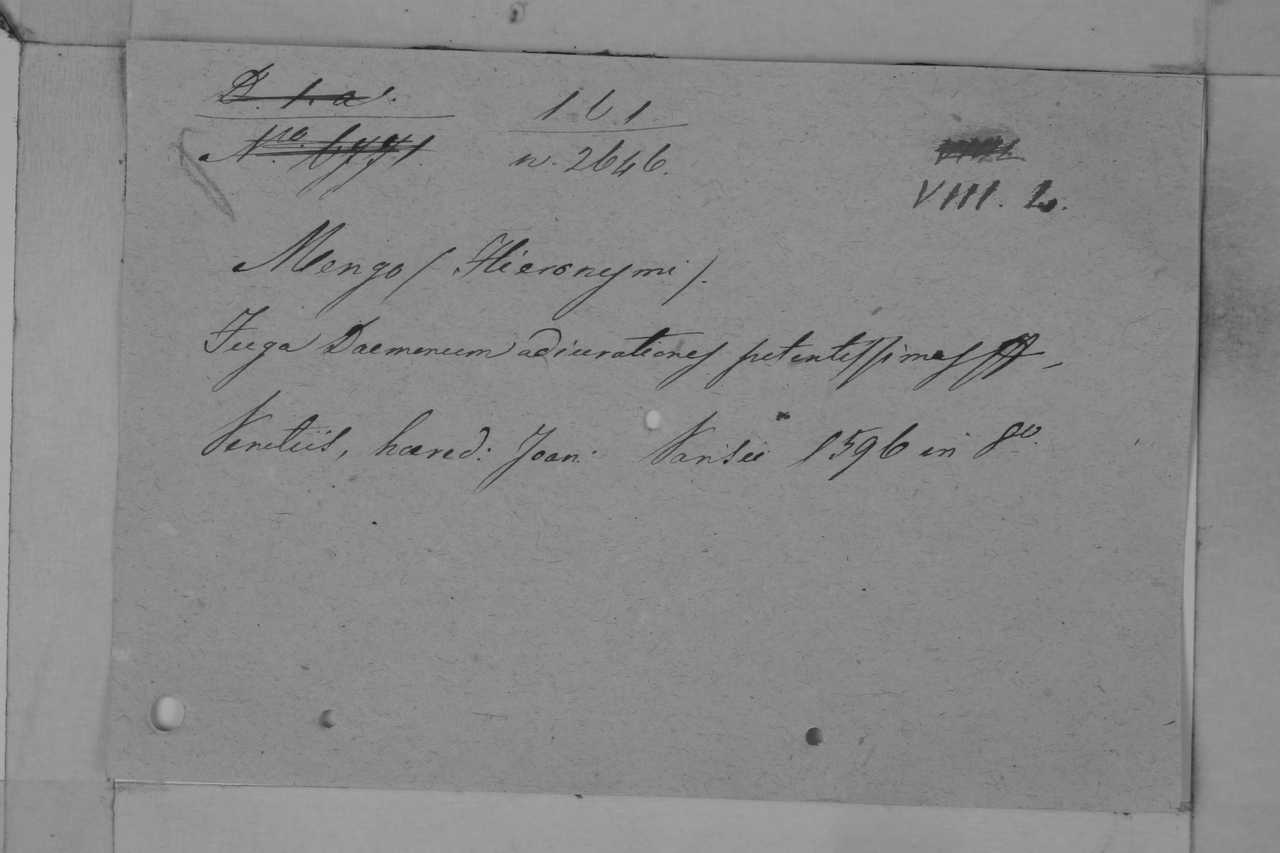 D. 1. a. 1 b 1
No. 6771. n. 2646.
VIII. b.
Mengo (Hieronymi).
Fuga Daemonum adiurationes potentissimas ff,
Venetiis, haered: Joan: Varisii 1596 in 8o.